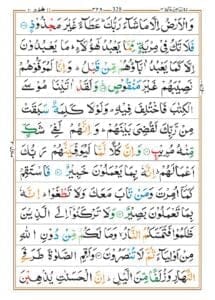 وَالْاَرْضُ اِلَّا مَا شَآءَ رَبُّكَ ؕ عَطَآءً غَيْرَ مَجْذُوْذٍ
فَلَا تَكُ فِيْ مِرْيَةٍ مِّمَّا يَعْبُدُ هٰٓؤُلَآءِ ؕ مَا يَعْبُدُوْنَ
اِلَّا كَمَا يَعْبُدُ اٰبَآؤُهُمْ مِّنْ قَبْلُ ؕ وَاِنَّا لَمُوَفُّوْهُمْ
نَصِيْبَهُمْ غَيْرَ مَنْقُوْصٍ وَلَقَدْ اٰتَيْنَا مُوْسَى
الْكِتٰبَ فَاخْتُلِفَ فِيْهِ ؕ وَلَوْلَا كَلِمَةٌ سَبَقَتْ
مِنْ رَّبِّكَ لَقُضِيَ بَيْنَهُمْ ؕ وَاِنَّهُمْ لَفِيْ شَكٍّ
مِّنْهُ مُرِيْبٍ وَاِنَّ كُلًّا لَّمَّا لَيُوَفِّيَنَّهُمْ رَبُّكَ
اَعْمَالَهُمْ ؕ اِنَّهٗ بِمَا يَعْمَلُوْنَ خَبِيْرٌ فَاسْتَقِمْ
كَمَآ اُمِرْتَ وَمَنْ تَابَ مَعَكَ وَلَا تَطْغَوْا ؕ اِنَّهٗ
بِمَا تَعْمَلُوْنَ بَصِيْرٌ وَلَا تَرْكَنُوْٓا اِلَى الَّذِيْنَ
ظَلَمُوْا فَتَمَسَّكُمُ النَّارُ ۙ وَمَا لَكُمْ مِّنْ دُوْنِ اللّٰهِ
مِنْ اَوْلِيَآءَ ثُمَّ لَا تُنْصَرُوْنَ وَاَقِمِ الصَّلٰوةَ طَرَفَيِ
النَّهَارِ وَزُلَفًا مِّنَ الَّيْلِ ؕ اِنَّ الْحَسَنٰتِ يُذْهِبْنَ